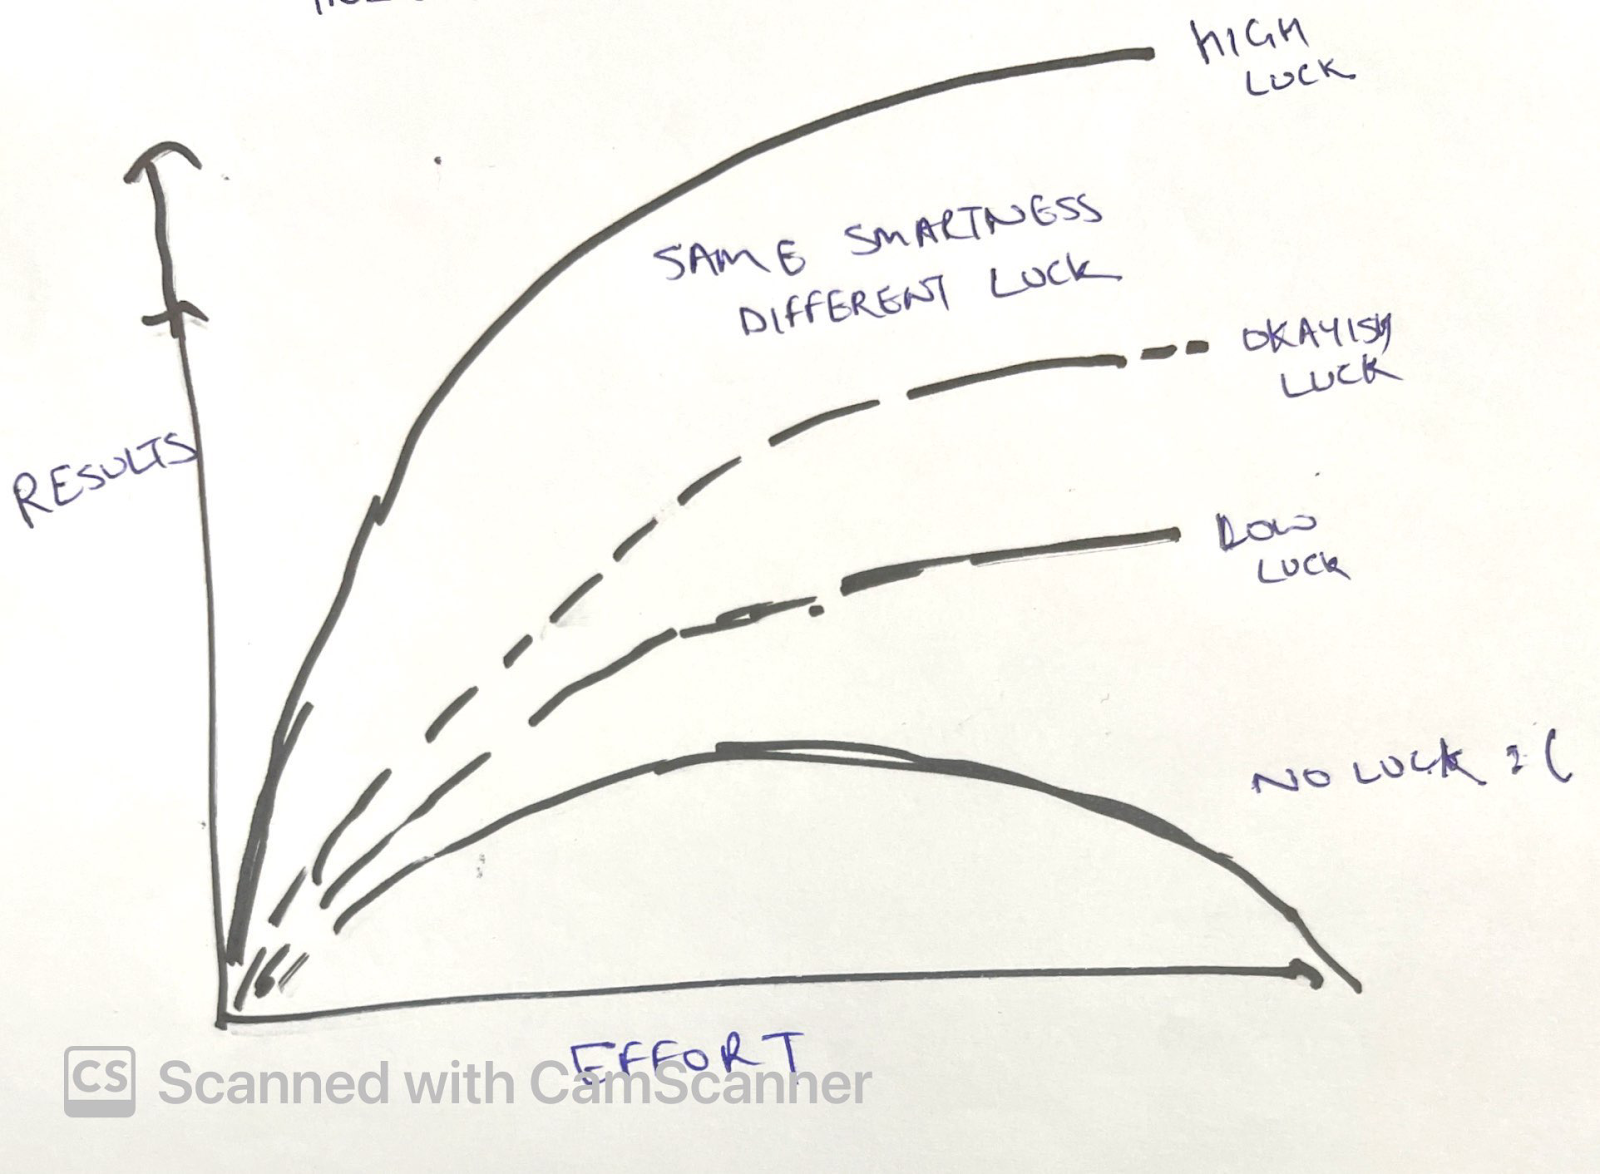 HIGH
LUCK
SAME SMARTNESS
DIFFERENT LUCK
OKAYISH
LUCK
RESULTS
LOW
LUCK
NO LUCK :(
EFFORT
CS Scanned with CamScanner